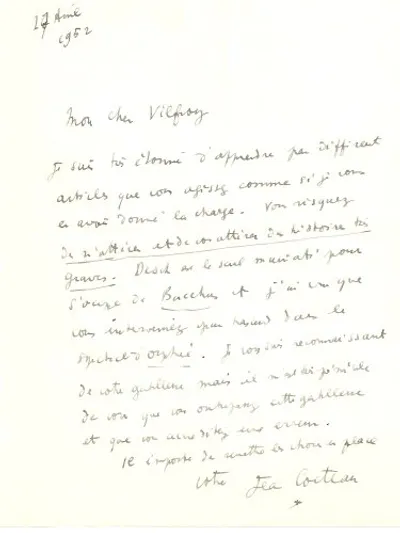 17 Avril
1952
Mon cher Vilfroy
Je suis très étonné d'apprendre par différent
articles que vous agissez comme si je vous
en avais donné la charge. Vous risquez
de m'attirer et de vous attirer des histoires très
graves. Desch est le seul pour
s'occuper de Bacchus et j'ai vu que
vous interveniez par hasard dans le
spectacle d'orphée. Je vous suis reconnaissant
de votre gentillesse mais il m'est pénible
de voir que vous outrepassez cette gentillesse
et que vous une erreur.
Il importe de remettre les choses en place
votre Jean Cocteau